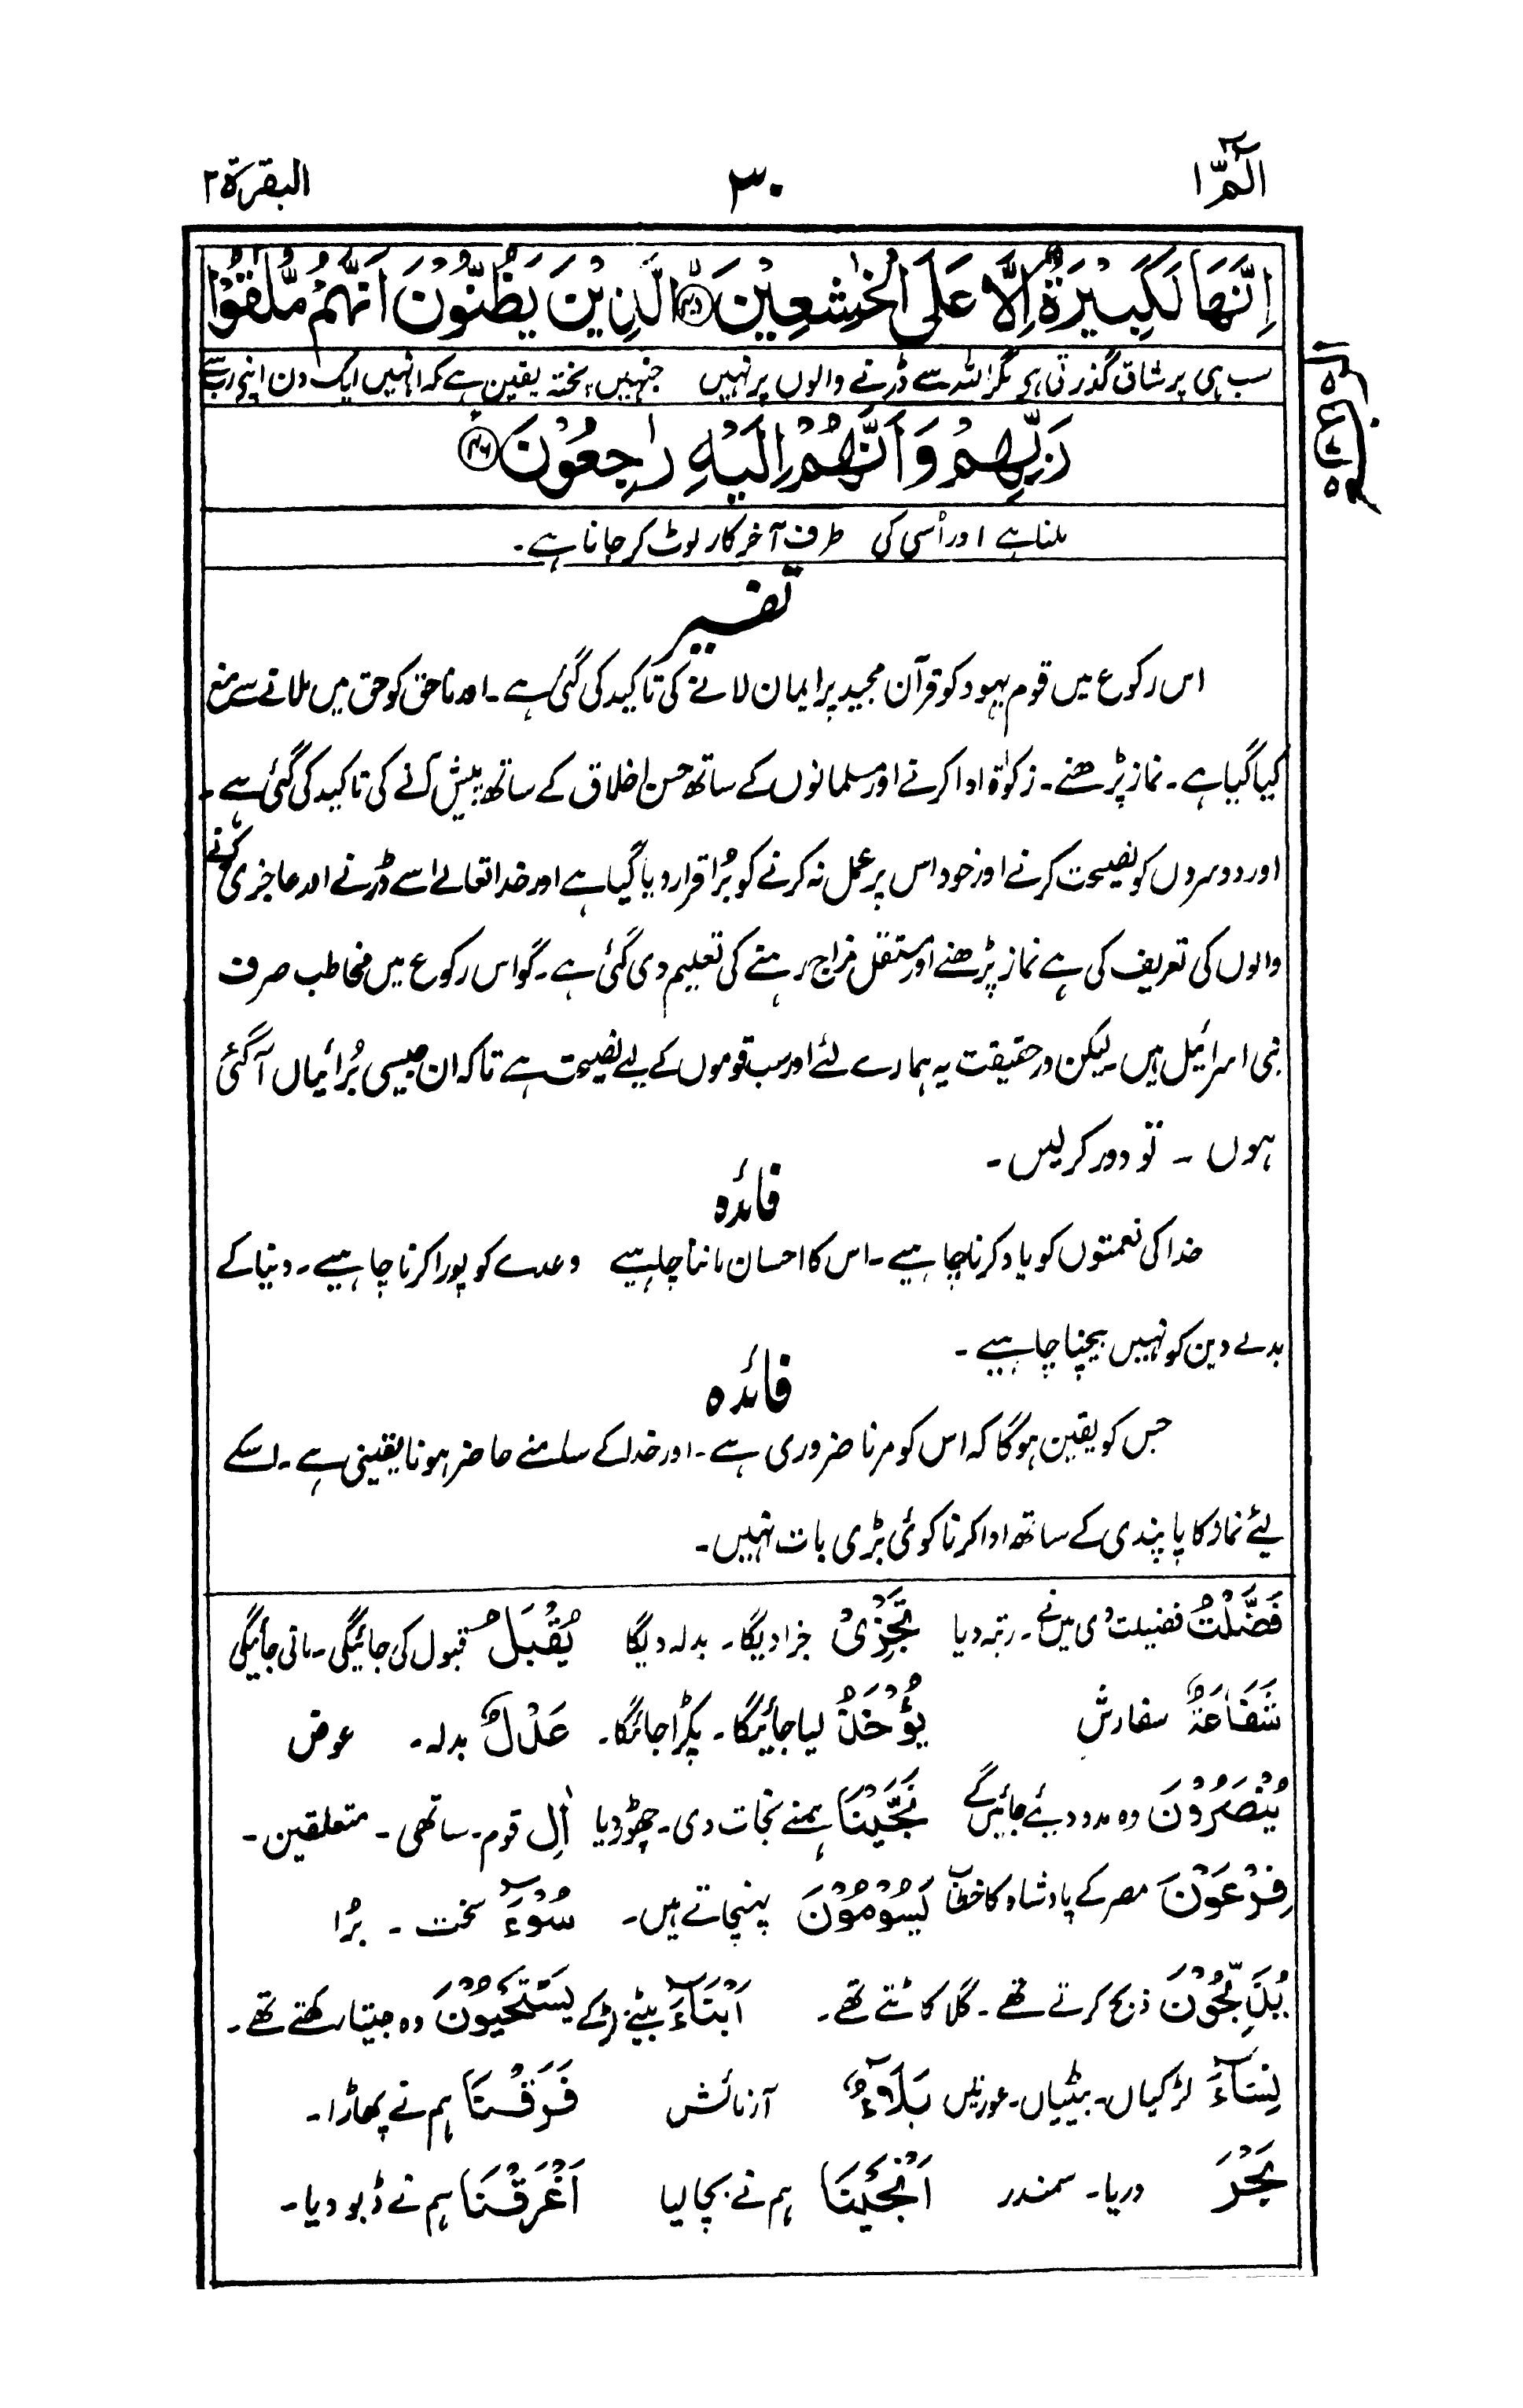 الٓمّٓ ۱ ۳۰ البقرۃ ۲
اِنَّهَا لَكَبِيْرَةٌ اِلَّا عَلَى الْخٰشِعِيْنَ ﴿۴۵﴾ الَّذِيْنَ يَظُنُّوْنَ اَنَّهُمْ مُّلٰقُوْا
سب ہی پر شاق گذرتی ہے مگر اللہ سے ڈرنے والوں پر نہیں جنہیں پختہ یقین ہے کہ انہیں ایک دن اپنے رب سے
رَبِّهِمْ وَاَنَّهُمْ اِلَيْهِ رٰجِعُوْنَ ﴿۴۶﴾
ملنا ہے اور اُسی کی طرف آخر کار لوٹ کر جانا ہے۔
ع
تفسیر
اس رکوع میں قوم یہود کو قرآن مجید پر ایمان لانے کی تاکید کی گئی ہے۔ اور ناحق کو حق میں ملانے سے منع
کیا گیا ہے۔ نماز پڑھنے۔ زکوٰۃ ادا کرنے اور مسلمانوں کے ساتھ حسن اخلاق کے ساتھ پیش آنے کی تاکید کی گئی ہے۔
اور دوسروں کو نصیحت کرنے اور خود اس پر عمل نہ کرنے کو بُرا قرار دیا گیا ہے اور خدا تعالےٰ سے ڈرنے اور عاجزی کرنے
والوں کی تعریف کی ہے نماز پڑھنے اور مستقل مزاج رہنے کی تعلیم دی گئی ہے۔ گو اس رکوع میں مخاطب صرف
بنی اسرائیل ہیں۔ لیکن درحقیقت یہ ہمارے لئے اور سب قوموں کے لیے نصیحت ہے تاکہ ان جیسی بُرائیاں آ گئی
ہوں ۔ تو دور کر لیں۔
فائدہ
خدا کی نعمتوں کو یاد کرنا چاہیے۔ اس کا احسان ماننا چاہیے وعدے کو پورا کرنا چاہیے۔ دنیا کے
بدلے دین کو نہیں بیچنا چاہیے۔
فائدہ
جس کو یقین ہوگا کہ اس کو مرنا ضروری ہے۔ اور خدا کے سامنے حاضر ہونا یقینی ہے۔ اسکے
لیئے نماز کا پابندی کے ساتھ ادا کرنا کوئی بڑی بات نہیں۔
فَضَّلْتُ فضیلت دی میں نے۔ رتبہ دیا تَجْزِیْ جزا دیگا۔ بدلہ دیگا یُقْبَلُ قبول کی جائیگی۔ مانی جائیگی
شَفَاعَةٌ سفارش یُؤْخَذُ لیا جائیگا۔ پکڑا جائیگا۔ عَدْلٌ بدلہ۔ عوض
یُنْصَرُوْنَ وہ مدد دیئے جائیں گے نَجَّیْنَا ہمنے نجات دی۔ چھڑوایا اٰلِ قوم۔ ساتھی۔ متعلقین۔
فِرْعَوْنَ مصر کے بادشاہ کا خطاب یَسُوْمُوْنَ پہنچاتے ہیں۔ سُوْٓءَ سخت ۔ بُرا
یُذَبِّحُوْنَ ذبح کرتے تھے۔ گلا کاٹتے تھے۔ اَبْنَآءَ بیٹے لڑکے یَسْتَحْیُوْنَ وہ جیتا رکھتے تھے۔
نِسَآءَ لڑکیاں۔ بیٹیاں۔ عورتیں بَلَآءٌ آزمائش فَرَقْنَا ہم نے پھاڑا۔
بَحْرَ دریا۔ سمندر اَنْجَیْنَا ہم نے بچا لیا اَغْرَقْنَا ہم نے ڈبو دیا۔